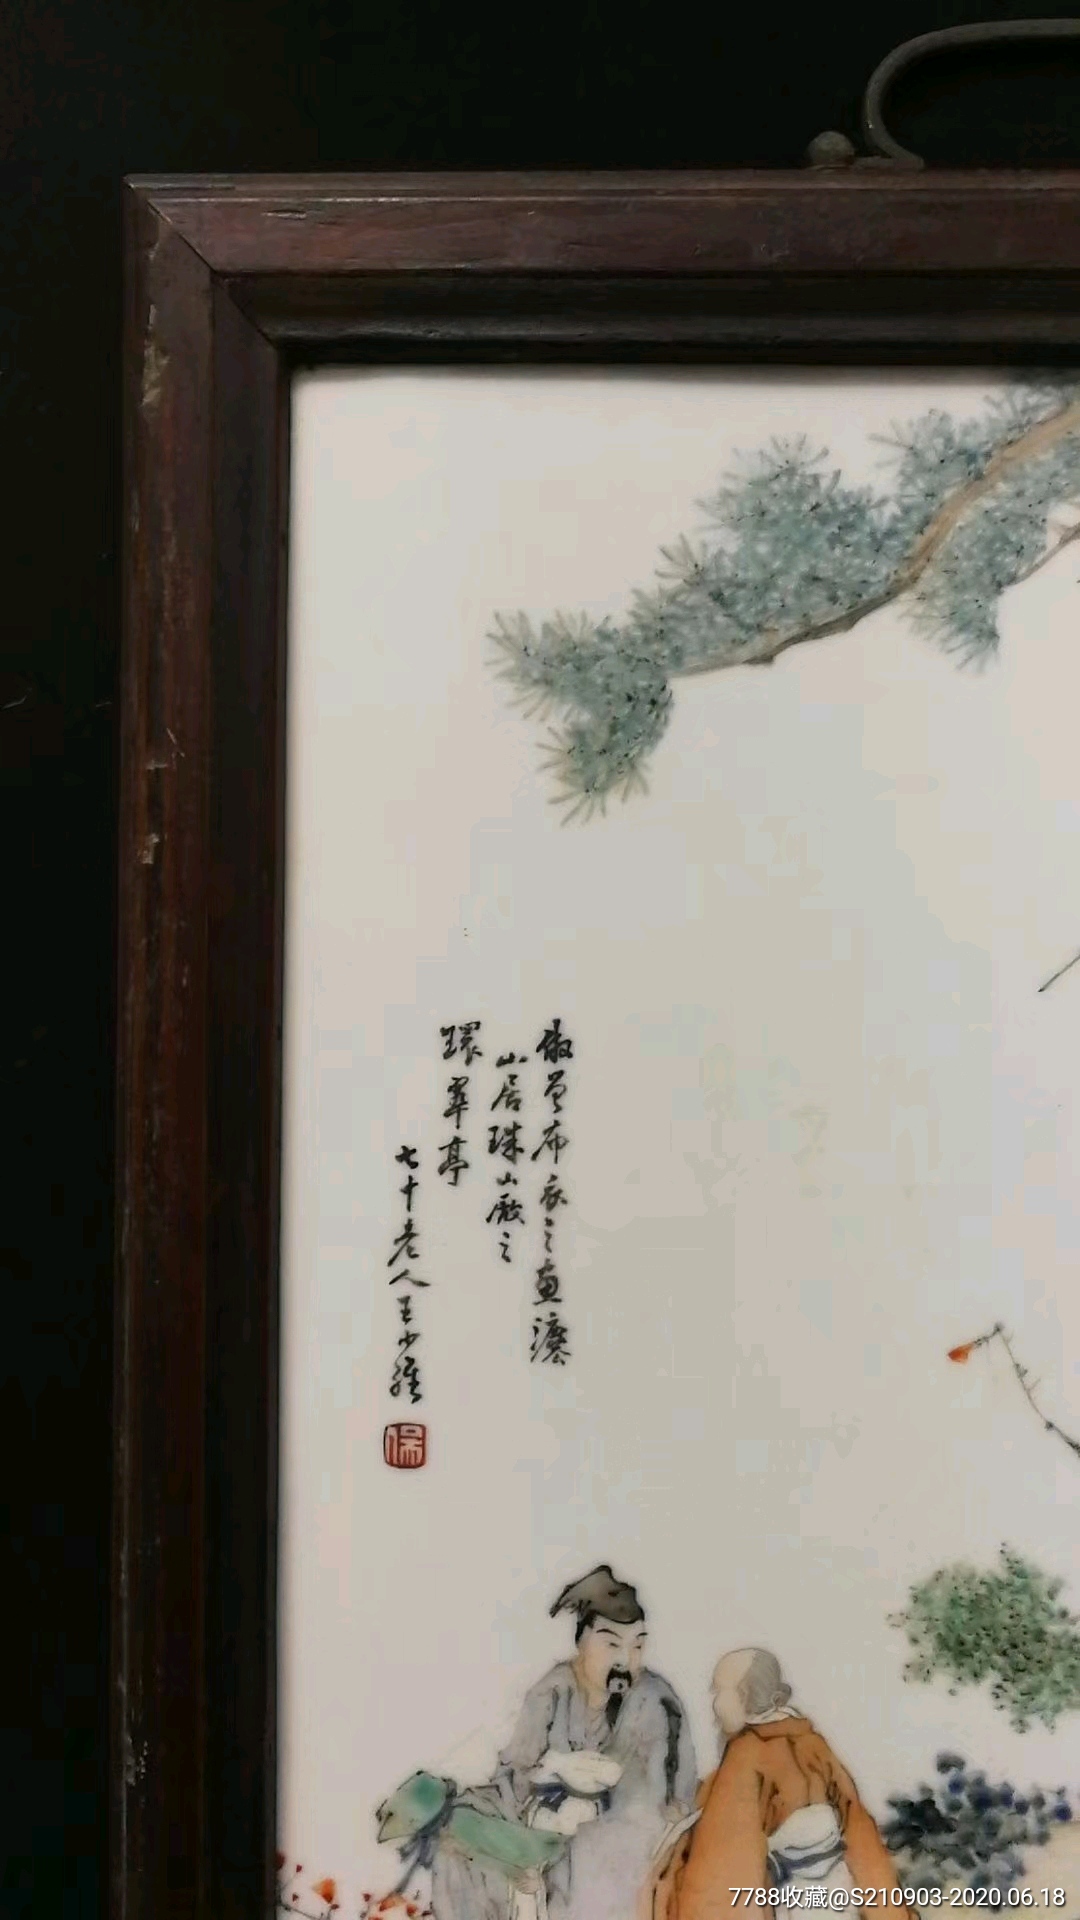 倣曾布衣之畫灋
山居珠山廠之
環翠亭
七十老人王少維
保
7788收藏@S210903-2020.06.18